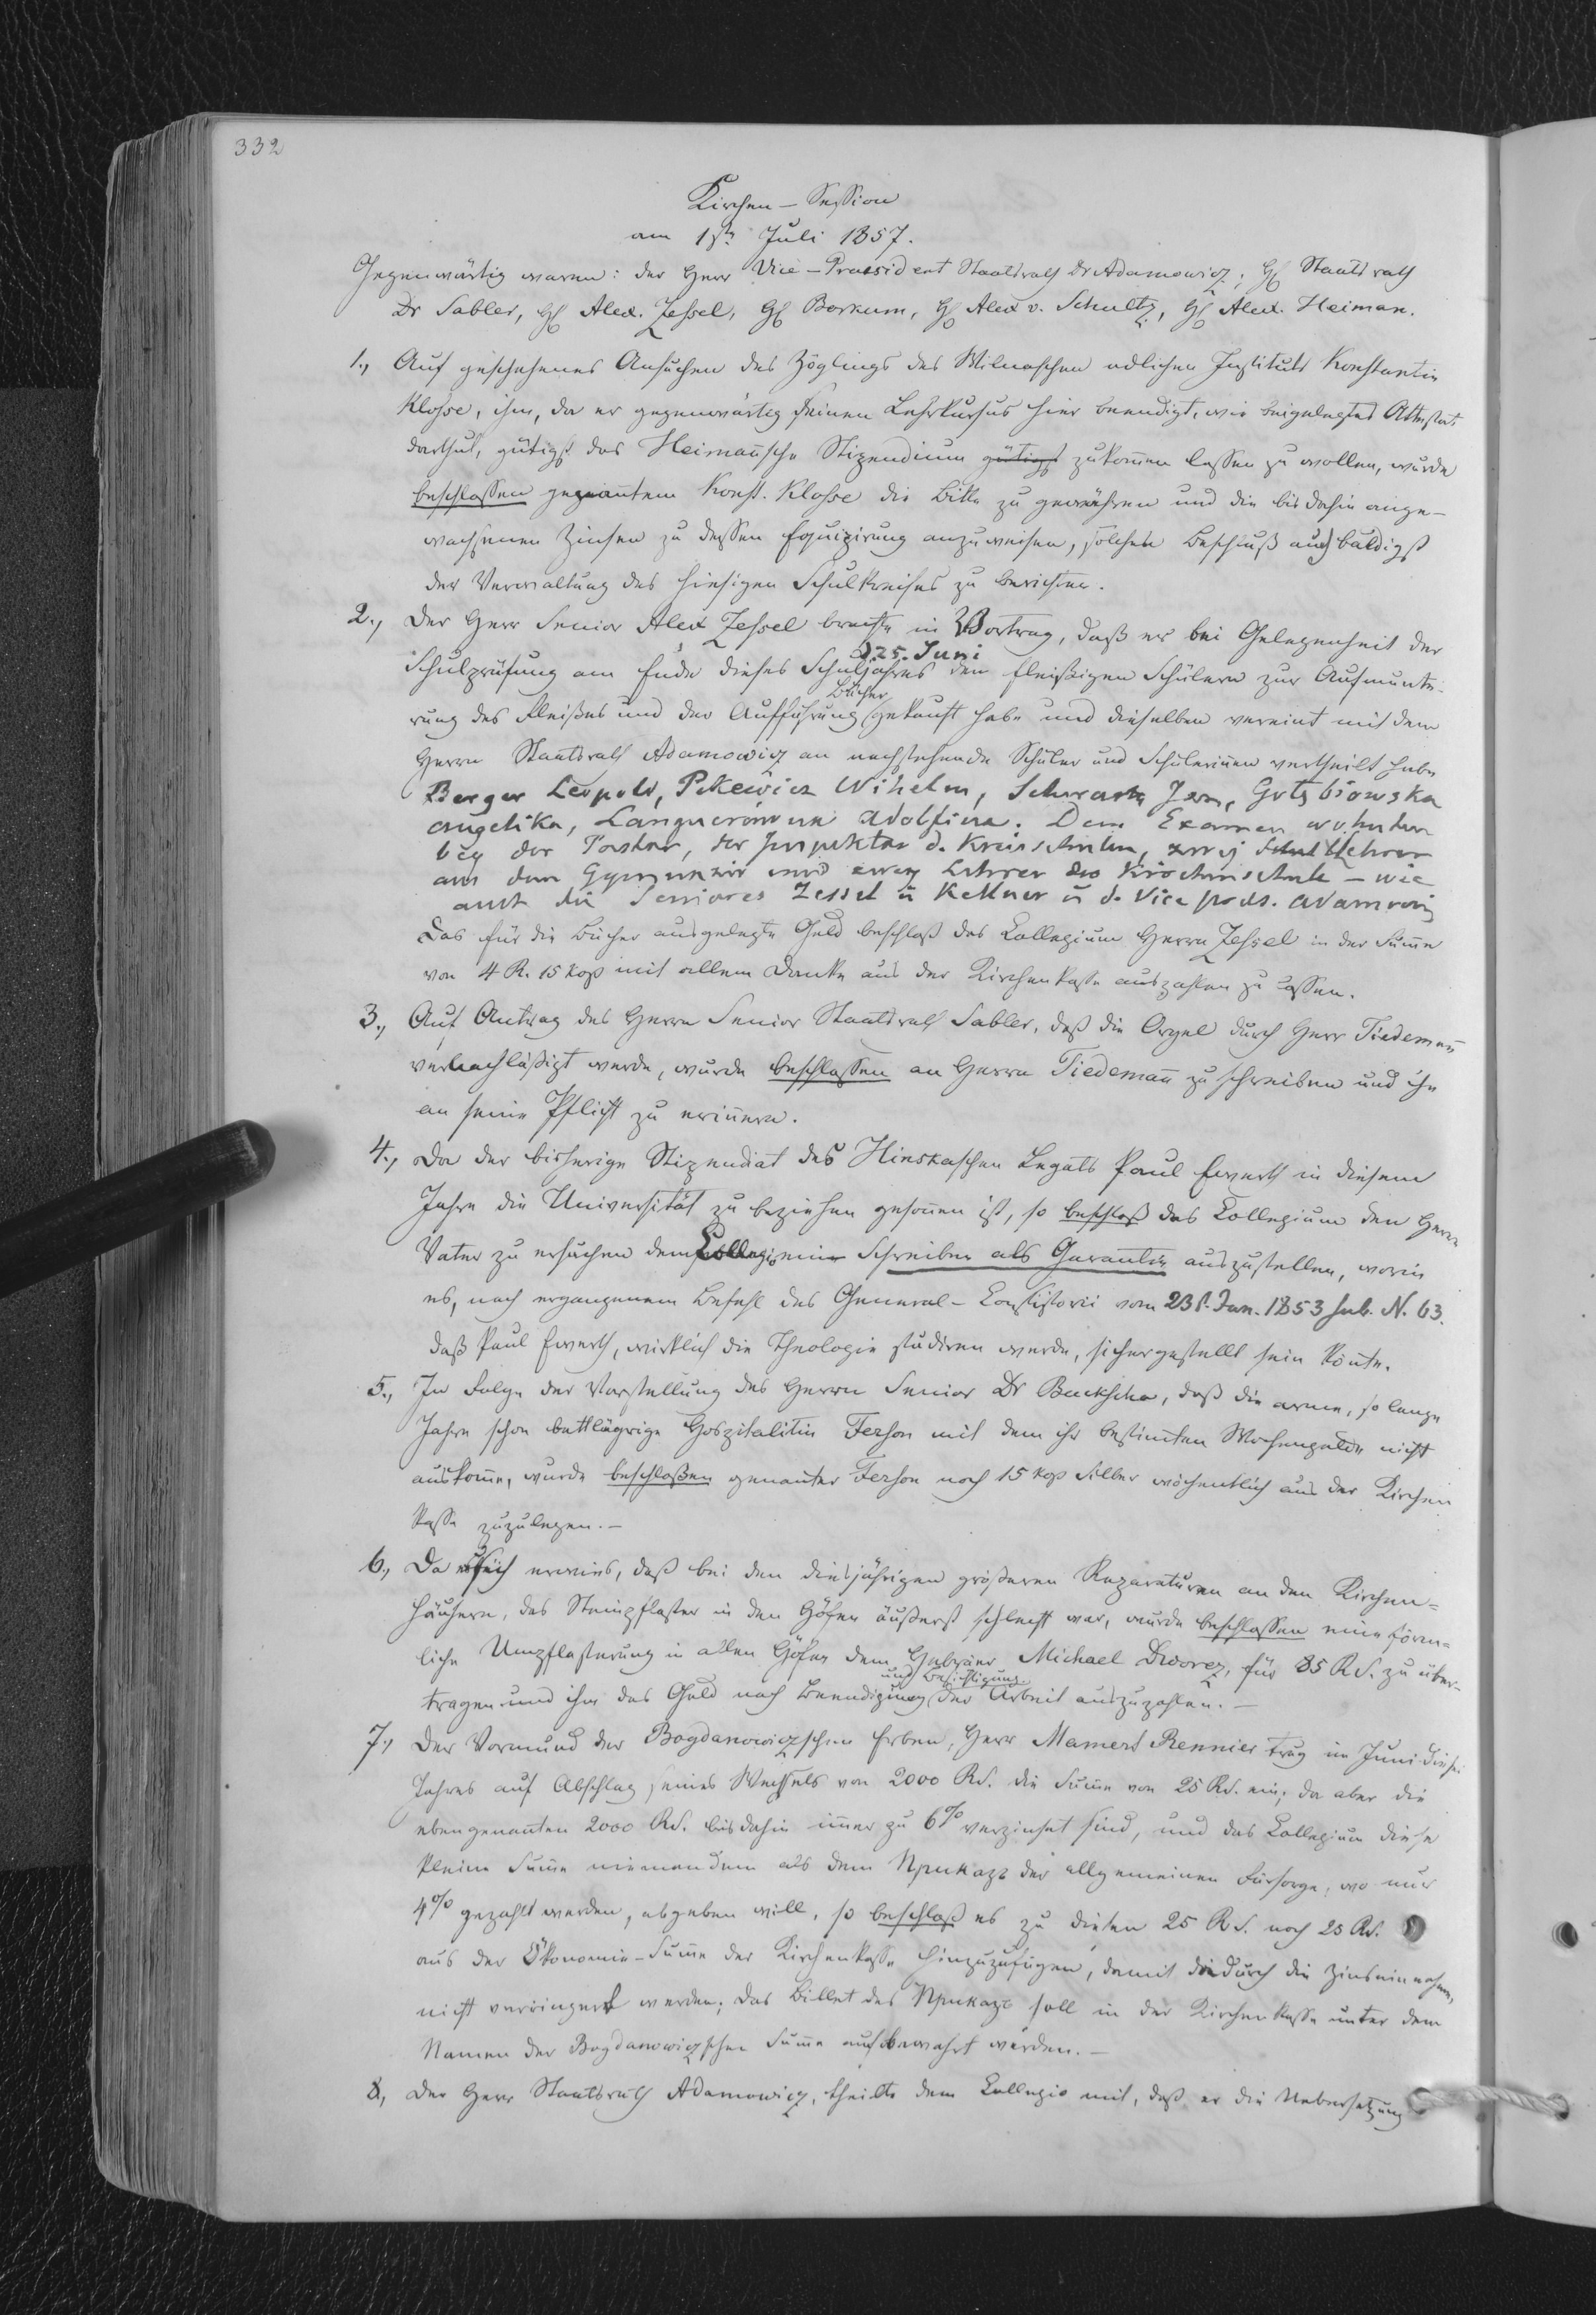 332
Kirchen-Session
am 1sten Juli 1857.
Gegenwärtig waren: der Herr Vice-Praesident Staatsrath Dr Adamowicz, H. Staatsrath
Dr Sabler, H. Alex. Zessel, H. Borkum, H. Alex v. Schultz, H. Alex. Heiman.
1., Auf geschehenes Ansuchen des Zöglings des Wilnaschen adlichen Instituts Konstantin
Klosse, ihm, da er gegenwärtig seinen Lehrkursus hier beendigt, wie beigelegtes Attestat
darthut, gütigst das Heimannsche Stipendium gütigst zukom̄en lassen zu wollen, wurde
beschlossen genan̄tem Konst. Klosse die Bitte zu gewähren und die bis dahin ange-
wachsenen Zinsen zu dessen Equipirung anzuweisen, solchen Beschluß auch baldigst
der Verwaltung des hiesigen Schulkreises zu berichten.
2., Der Herr Senior Alex Zessel brachte in Vortrag, daß er bei Gelegenheit der
d 25. Juni
Schulprüfung am Ende dieses Schuljahres den fleißigen Schülern zur Aufmunte-
Bücher
rung des Fleißes und der Aufführung gekauft habe und dieselben vereint mit dem
Herrn Staatsrath Adamowicz an nachstehende Schüler und Schülerin̄en vertheilt habe
Berger Leopold, Pekewicz Wilhelm, Schwartz Jean, Golębiowska
Angelika, Adolfina. Dem Examen wohnten
bey der Pastor, der Inspektor d. Kreisschulen, zwej Lehrer
aus dem Gymnasio und zwey Lehrer der Kirchenschule – wie
auch die Seniores Zessel u Kellner u d. Vice präs. Adamowicz
Das für die Bücher ausgelegte Geld beschloß das Collegium Herrn Zessel in der Sum̄e
von 4 R. 15 Kop mit allem Danke aus der Kirchenkasse auszahlen zu lassen.
3., Auf Antrag des Herrn Senior Staatsrath Sabler, daß die Orgel durch Herr Tiedeman̄
vernachläßigt werde, wurde beschlossen an Herrn Tiedeman̄ zu schreiben und ihn
an seine Pflicht zu erin̄ern.
4., Da der bisherige Stipendiat des Hinskaschen Legats Paul Ewerth in diesem
Jahre die Universität zu beziehen geson̄en ist, so beschloß das Collegium den Herrn
Vater zu ersuchen dem Collegio ein Schreiben als Garantie auszustellen, worin
es, nach ergangenem Befehl des General-Consistorii vom 23 t. Jan. 1853 sub. N. 63.
daß Paul Ewerth, wirklich die Theologie studiren werde, sichergestellt sein kön̄te.
5., In Folge der Vorstellung des Herrn Senior Dr Buckscha, daß die arme, so lange
Jahre schon bettlägrige Hospitalitin Ferson mit dem ihr bestim̄ten Wochengelde nicht
auskom̄e, wurde beschloßen genan̄ter Ferson noch 15 Kop Silber wöchentlich aus der Kirchen
kasse zuzulegen.-
6., Da es sich erwies, daß bei den diesjährigen größeren Reparaturen an den Kirchen-
häusern, das Steinpflaster in den Höfen äußerst schlecht war, wurde beschlossen eine förm-
liche Umpflasterung in allen Höfen dem Hebräer Michael Dworez, für 85 RS. zu über-
und Besichtigung
tragen und ihm das Geld nach Beendigung der Arbeit auszuzahlen.-
7., Der Vormund der Bogdanowiczschen Erben, Herr Mamert Rennier trug im Juni dieses
Jahres auf Abschlag seines Wechsels von 2000 RS. die Sum̄e von 25 RS. ein; da aber die
ebengenan̄ten 2000 RS. bis dahin im̄er zu 6% verzinset sind, und das Collegium diese
kleine Sum̄e niemandem als dem Приказъ der allgemeinen Fürsorge, wo nur
4% gezahlt werden, abgeben will, so beschloß es zu diesen 25 RS. noch 25 RS.
aus der Ökonomie-Sum̄e der Kirchenkasse hinzuzufügen, damit dadurch die Zinseinnahmen,
nicht verringert werden; das Billet des Приказъ soll in der Kirchenkasse unter dem
Namen der Bogdanowiczschen Sum̄e aufbewahrt werden.-
8., Der Herr Staatsrath Adamowicz, theilte dem Collegio mit, daß er die Uebersetzung